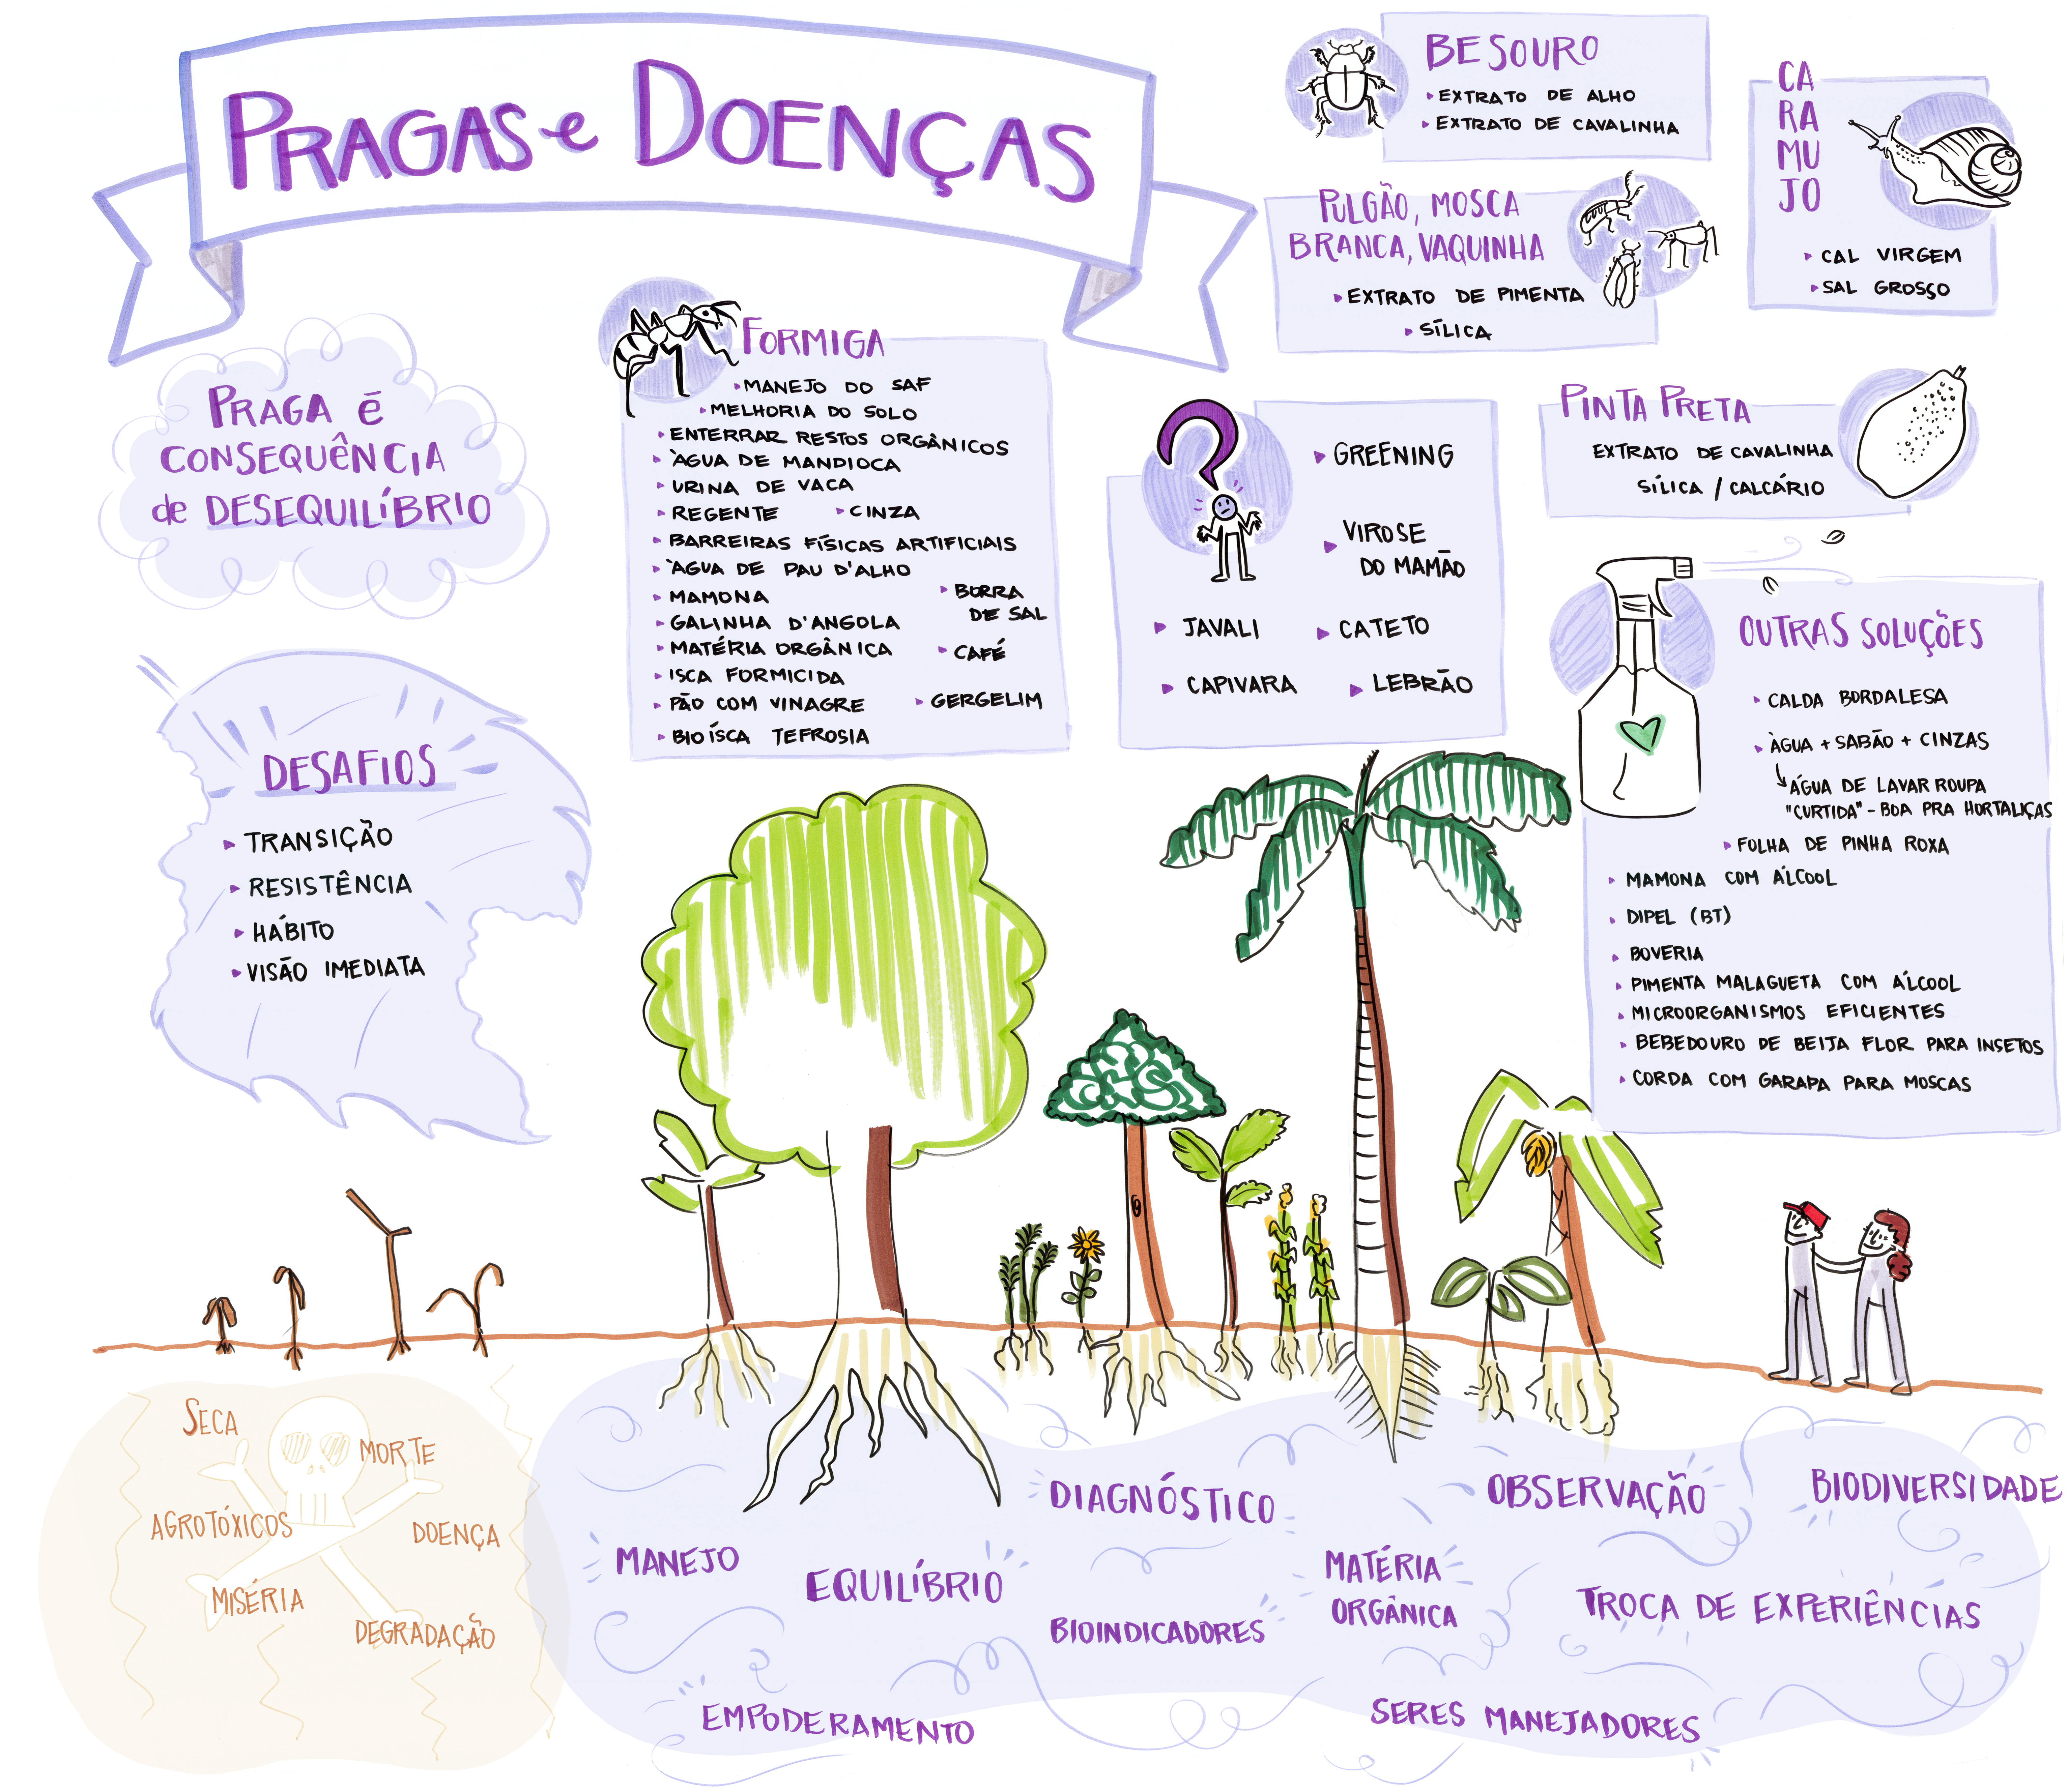 PRAGAS e DOENÇAS
PRAGA É
CONSEQUÊNCIA
de DESEQUILÍBRIO
DESAFIOS
TRANSIÇÃO
RESISTÊNCIA
HÁBITO
VISÃO IMEDIATA
FORMIGA
MANEJO DO SAF
MELHORIA DO SOLO
ENTERRAR RESTOS ORGÂNICOS
ÀGUA DE MANDIOCA
URINA DE VACA
REGENTE CINZA
BARREIRAS FÍSICAS ARTIFICIAIS
ÀGUA DE PAU D'ALHO
MAMONA
BORRA
DE SAL
GALINHA D'ANGOLA
MATÉRIA ORGÂNICA
CAFÉ
ISCA FORMICIDA
PÃO COM VINAGRE
GERGELIM
BIOÍSCA TEFROSIA
BESOURO
EXTRATO DE ALHO
EXTRATO DE CAVALINHA
PULGÃO, MOSCA
BRANCA, VAQUINHA
EXTRATO DE PIMENTA
SÍLICA
CA
RA
MU
JO
CAL VIRGEM
SAL GROSSO
GREENING
VIROSE
DO MAMÃO
JAVALI
CATETO
CAPIVARA
LEBRÃO
PINTA PRETA
EXTRATO DE CAVALINHA
SÍLICA / CALCÁRIO
OUTRAS SOLUÇÕES
CALDA BORDALESA
ÀGUA + SABÃO + CINZAS
ÁGUA DE LAVAR ROUPA
"CURTIDA" - BOA PRA HORTALIÇAS
FOLHA DE PINHA ROXA
MAMONA COM ÁLCOOL
DIPEL (BT)
BOVERIA
PIMENTA MALAGUETA COM ÁLCOOL
MICROORGANISMOS EFICIENTES
BEBEDOURO DE BEIJA FLOR PARA INSETOS
CORDA COM GARAPA PARA MOSCAS
SECA
MORTE
AGROTÓXICOS
DOENÇA
MISÉRIA
DEGRADAÇÃO
DIAGNÓSTICO
OBSERVAÇÃO
BIODIVERSIDADE
MANEJO
EQUILÍBRIO
MATÉRIA
ORGÂNICA
BIOINDICADORES
TROCA DE EXPERIÊNCIAS
EMPODERAMENTO
SERES MANEJADORES